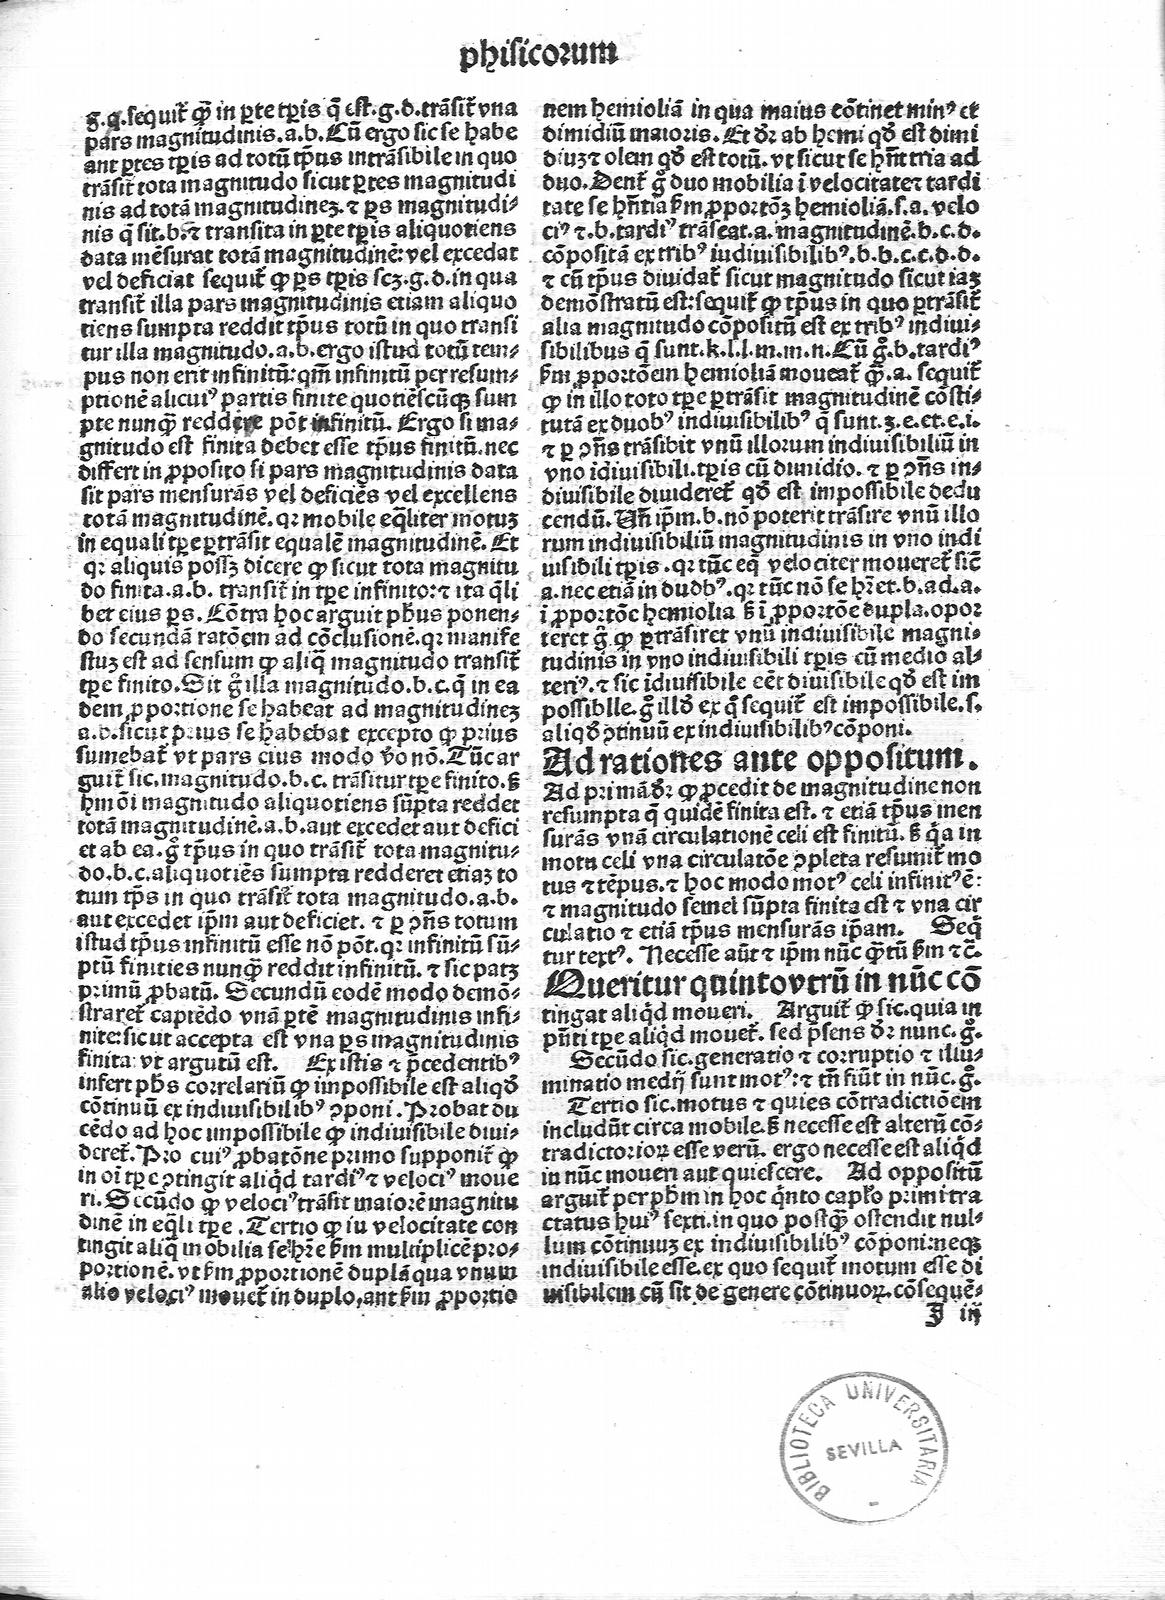 phisicorum
g.q.sequit̃ ꝙ in ꝑte tꝑis q̃ est.g.d.trãsit̃ vna
pars magnitudinis.a.b.Cũ ergo sic se habe
ant ꝑtes tꝑis ad totũ tp̃us intrãsibile in quo
trãsit̃ tota magnitudo sicut ꝑtes magnitudi
nis ad totã magnitudineꝫ.⁊ ꝑs magnitudi⸗
nis q̃ sit.b.⁊ transita in ꝑte tꝑis aliquotiens
data mẽsurat totã magnitudinẽ: vel excedat
vel deficiat sequit̃ ꝙ ꝑs tꝑis scꝫ.g.d.in qua
transit̃ illa pars magnitudinis etiam aliquo
tiens sumpta reddit tp̃us totũ in quo transi
tur illa magnitudo.a.b.ergo istud totũ tem⸗
pus non erit infinitũ:qm̃ infinitũ per resum⸗
ptionẽ alicuiꝰ partis finite quotiẽscũqꝫ sum
pte nunq̃ reddere põt infinitũ. Ergo si ma⸗
gnitudo est finita debet esse tp̃us finitũ.nec
differt in ꝓposito si pars magnitudinis data
sit pars mensurãs vel deficiẽs vel excellens
totã magnitudinẽ.qꝛ mobile eq̃liter motuꝫ
in equali tꝑe ꝑtrãsit equalẽ magnitudinẽ. Et
qꝛ aliquis possꝫ dicere ꝙ sicut tota magnitu
do finita.a.b. transit̃ in tꝑe infinito:⁊ ita q̃li
bet eius ꝑs. Cõtra hoc arguit ph̃us ponen⸗
do secundã ratõem ad cõclusionẽ.qꝛ manife
stuꝫ est ad sensum ꝙ aliq̃ magnitudo transit̃
tꝑe finito.Sit g̃ illa magnitudo.b.c.q̃ in ea
dem ꝓportione se habeat ad magnitudineꝫ
a.b.sicut prius se habebat excepto ꝙ prius
sumebat̃ vt pars eius modo ṽo nõ.Tũc ar
guit̃ sic.magnitudo.b.c. trãsitur tꝑe finito.ß
hm̃õi magnitudo aliquotiens sũpta reddet
totã magnitudinẽ.a.b.aut excedet aut defici
et ab ea.g̃ tp̃us in quo trãsit̃ tota magnitu⸗
do.b.c.aliquotiẽs sumpta redderet etiaꝫ to
tum tp̃s in quo trãsit̃ tota magnitudo.a.b.
aut excedet ip̃m aut deficiet. ⁊ ꝑ ↄñs totum
istud tp̃us infinitũ esse nõ põt.qꝛ infinitũ sũ⸗
ptũ finities nunq̃ reddit infinitũ. ⁊ sic patꝫ
primũ ꝓbatũ. Secundũ eodẽ modo demõ⸗
straret̃ capiẽdo vnã ꝑtẽ magnitudinis infi⸗
nite:sicut accepta est vna ꝑs magnitudinis
finita vt argutũ est. Ex istis ⁊ p̃cedentibꝰ
infert ph̃s correlariũ ꝙ impossibile est aliqď
cõtinuũ ex indiuisibilibꝰ ↄponi. Probat du
cẽdo ad hoc impossibile ꝙ indiuisibile diui⸗
deret̃. Pro cuiꝰ ꝓbatõne primo supponit̃ ꝙ
in oĩ tꝑe ↄtingit aliq̃d tardiꝰ ⁊ velociꝰ moue
ri. Secũdo ꝙ velociꝰ trãsit maiorẽ magnitu
dinẽ in eq̃li tꝑe . Tertio ꝙ in velocitate con
tingit aliq̃ mobilia se hr̃e ẜm multiplicẽ pro⸗
portionẽ. vt ẜm ꝓportionẽ duplã qua vnum
alio velociꝰ mouet̃ in duplo,aut ẜm ꝓportio
nem hemioliã in qua maius cõtinet minꝰ et
dimidiũ maioris. Et dr̃ ab hemi qď est dimi
diuꝫ ⁊ olem qď est totũ. vt sicut se hñt tria ad
duo. Dent̃ g̃ duo mobilia ĩ velocitate ⁊ tardi
tate se hñtia ẜm ꝓportõꝫ hemioliã.s.a. velo
ciꝰ ⁊.b.tardiꝰ trãseat.a. magnitudinẽ.b.c.d.
cõpositã ex tribꝰ indiuisibilibꝰ.b.b.c.c.d.d.
⁊ cũ tp̃us diuidat̃ sicut magnitudo sicut iaꝫ
demõstratũ est:sequit̃ ꝙ tp̃us in quo ꝑtrãsit̃
alia magnitudo cõpositũ est ex tribꝰ indiui⸗
sibilibus q̃ sunt.k.l.l.m.m.n.Cũ g̃.b.tardiꝰ
ẜm ꝓportõem hemioliã moueat̃ ꝙ̃.a. sequit̃
ꝙ in illo toto tꝑe ꝑtrãsit magnitudinẽ cõsti⸗
tutã ex duobꝰ indiuisibilibꝰ q̃ sunt.ꝫ.e.et.e.i.
⁊ ꝑ ↄñs trãsibit vnũ illorum indiuisibiliũ in
vno ĩdiuisibili.tꝑis cũ dimidio. ⁊ ꝑ ↄñs in⸗
diuisibile diuideret̃ qď est impossibile dedu
cendũ. Uñ ip̃m.b.nõ poterit trãsire vnũ illo
rum indiuisibiliũ magnitudinis in vno indi
uisibili tꝑis .qꝛ tũc eq̃ velociter moueret̃ sic̃
a.nec etiã in duobꝰ.qꝛ tũc nõ se hr̃et.b.ad.a.
ĩ ꝓportõe hemiolia ß ĩ ꝓportõe dupla.opor
teret g̃ ꝙ ꝑtrãsiret vnũ indiuisibile magni⸗
tudinis in vno indiuisibili tꝑis cũ medio al⸗
teriꝰ.⁊ sic ĩdiuisibile eẽt diuisibile qď est im
possiblle.g̃ illď ex q̃ sequit̃ est impossibile.s.
aliqď ↄtinuũ ex indiuisibilibꝰ cõponi.
Ad rationes ante oppositum.
Ad primã dr̃ ꝙ ꝓcedit de magnitudine non
resumpta q̃ quidẽ finita est. ⁊ etiã tp̃us men
surãs vnã circulationẽ celi est finitũ. ß q̃a in
motu celi vna circulatõe ↄpleta resumit̃ mo
tus ⁊ tẽpus.⁊ hoc modo motꝰ celi infinitꝰ ẽ:
⁊ magnitudo semel sũpta finita est ⁊ vna cir
culatio ⁊ etiã tp̃us mensurãs ip̃am. Seq̃
tur textꝰ. Necesse aũt ⁊ ip̃m nũc ꝙ̃tũ ẜm ⁊c̃.
Queritur quinto vtrũ in nũc cõ
tingat aliq̃d moueri. Arguit̃ ꝙ sic.quia in
pñti tꝑe aliq̃d mouet̃. sed p̃sens dr̃ nunc.g̃.
Secũdo sic.generatio ⁊ corruptio ⁊ illu⸗
minatio medij sunt motꝰ:⁊ tñ fiũt in nũc.g̃.
Tertio sic.motus ⁊ quies cõtradictiõem
includũt circa mobile.ß necesse est alterũ cõ⸗
tradictorioꝝ esse verũ. ergo necesse est aliq̃d
in nũc moueri aut quiescere. Ad oppositũ
arguit̃ per ph̃m in hoc q̃nto capło primi tra
ctatus huiꝰ sexti.in quo postꝙ̃ ostendit nul⸗
lum cõtinuuꝫ ex indiuisibilibꝰ cõponi:neqꝫ
indiuisibile esse.ex quo sequit̃ motum esse di
uisibilem cũ sit de genere cõtinuoꝝ.cõsequẽ⸗
J iij
BIBLIOTECA UNIVERSITARIA
SEVILLA